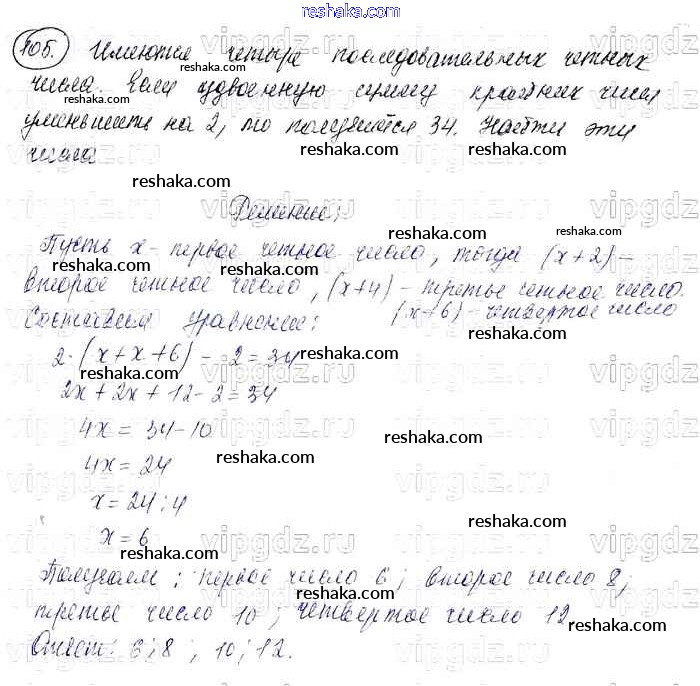 reshaka.com
105. Имеются четыре последовательных четных
числа. Если удвоенную сумму крайних чисел
уменьшить на 2, то получится 34. Найти эти
числа
Решение:
Пусть x - первое четное число, тогда (x+2) -
второе четное число, (x+4) - третье четное число.
(x+6) - четвертое число
Составим уравнение:
2·(x+x+6) - 2=34
2x+2x+12-2=34
4x=34-10
4x=24
x=24:4
x=6
Получаем: первое число 6; второе число 8;
третье число 10; четвертое число 12
Ответ: 6; 8; 10; 12.